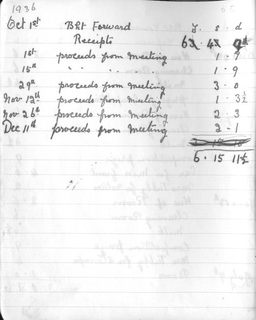 1936
Oct 1st Bࢠt Forward £. s. d
Receipts 6 3. 4 3. 9 d
1st proceeds from Meeting 1. 7
15th " " " 1. 9
29th proceeds from Meeting 3. 0
Nov 12th proceeds from Meeting 1. 3½
Nov 26th proceeds from Meeting 2. 3
Dec 11th proceeds from Meeting 2. 1
6. 15 11½